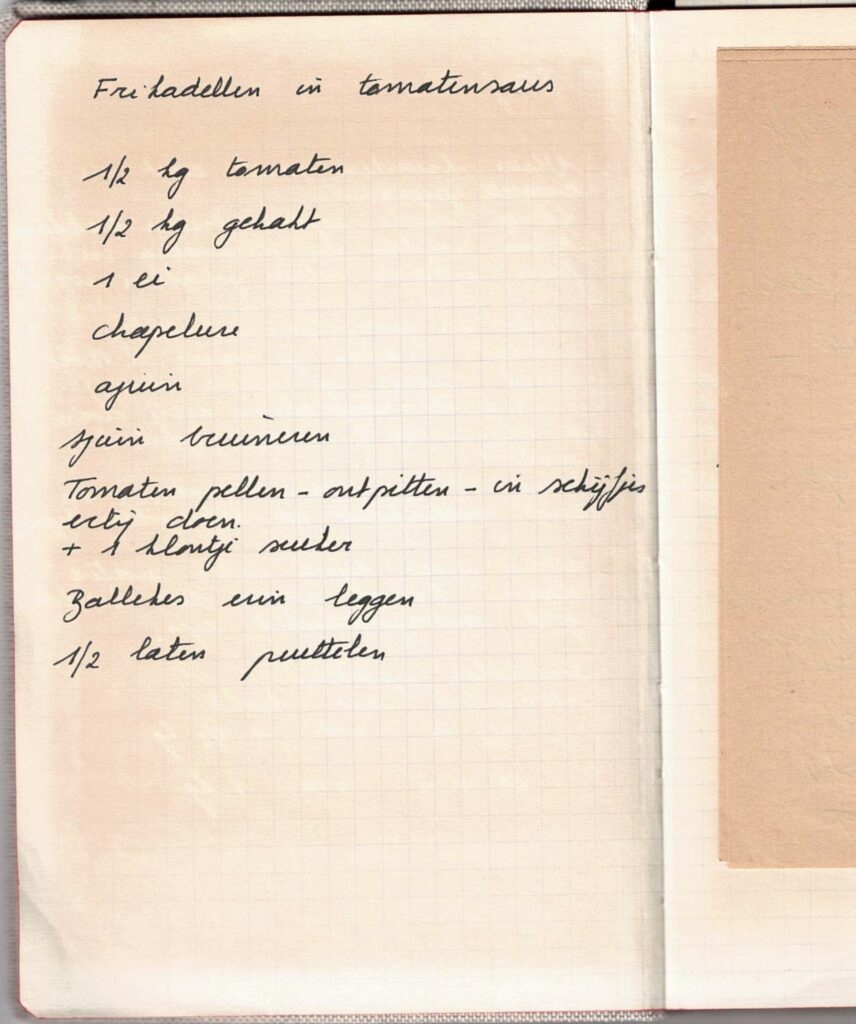 Frikadellen in tomatensaus
1/2 kg tomaten
1/2 kg gehakt
1 ei
chapelure
ajuin
ajuin bruineren
Tomaten pellen - ontpitten - in schijfjes
erbij doen.
+ 1 klontje suiker
Balletjes erin leggen
1/2 laten pruttelen